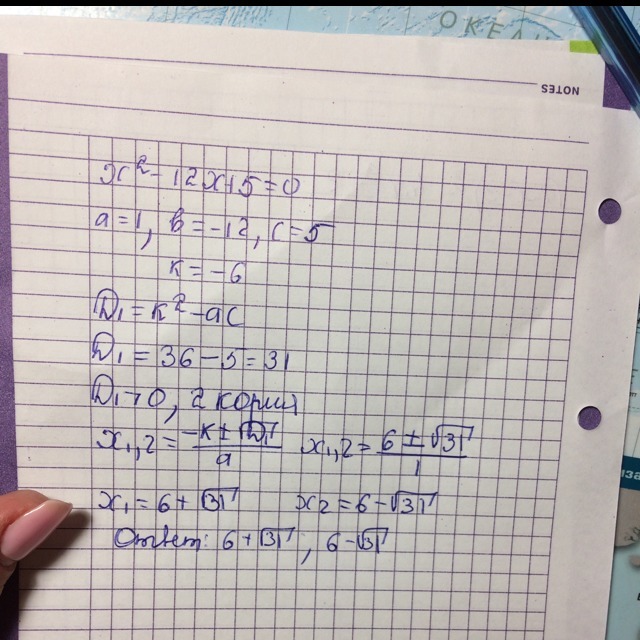 ОКЕАН
NOTES
x² - 12x+5=0
a=1, b=-12, c=5
k=-6
D₁=k²-ac
D₁=36-5=31
D₁>0, 2 корня
x₁,₂=(-k±√D₁)/a x₁,₂=(6±√31)/1
x₁=6+√31 x₂=6-√31
Ответ: 6+√31; 6-√31